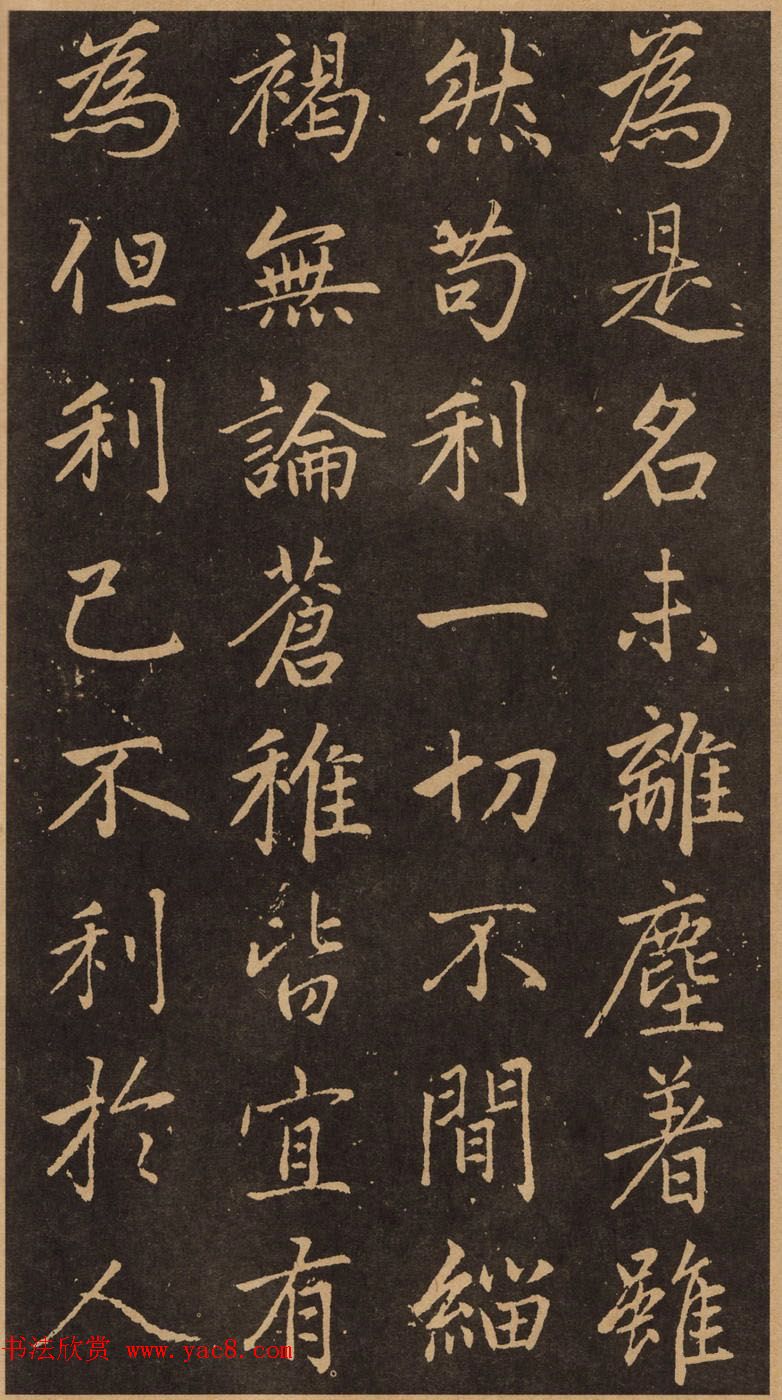 為是名未離塵着雖
然苟利一切不間緇
褐無論蒼稚皆宜有
為但利己不利於人
书法欣赏 www.yac8.com